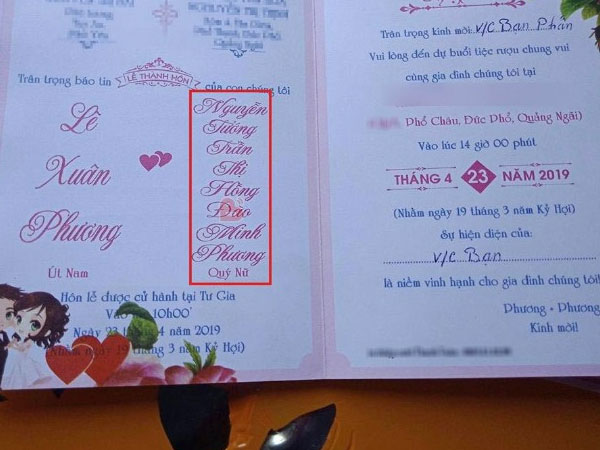 Trân trọng báo tin
LỄ THÀNH HÔN
của con chúng tôi
Lê
Xuân
Phương
Út Nam
Nguyễn
Tường
Trần
Thị
Hồng
Đào
Minh
Phương
Quý Nữ
Hôn lễ được cử hành tại Tư Gia
Vào 10h00'
Ngày 23 4 năm 2019
(Nhằm ngày 19 tháng 3 năm Kỷ Hợi)
Trân trọng kính mời: V/C Bạn Phần
Vui lòng đến dự buổi tiệc rượu chung vui
cùng gia đình chúng tôi tại
Phổ Châu, Đức Phổ, Quảng Ngãi)
Vào lúc 14 giờ 00 phút
THÁNG 4 23 NĂM 2019
(Nhằm ngày 19 tháng 3 năm Kỷ Hợi)
Sự hiện diện của:
V/C Bạn
là niềm vinh hạnh cho gia đình chúng tôi!
Phương - Phương
Kính mời!